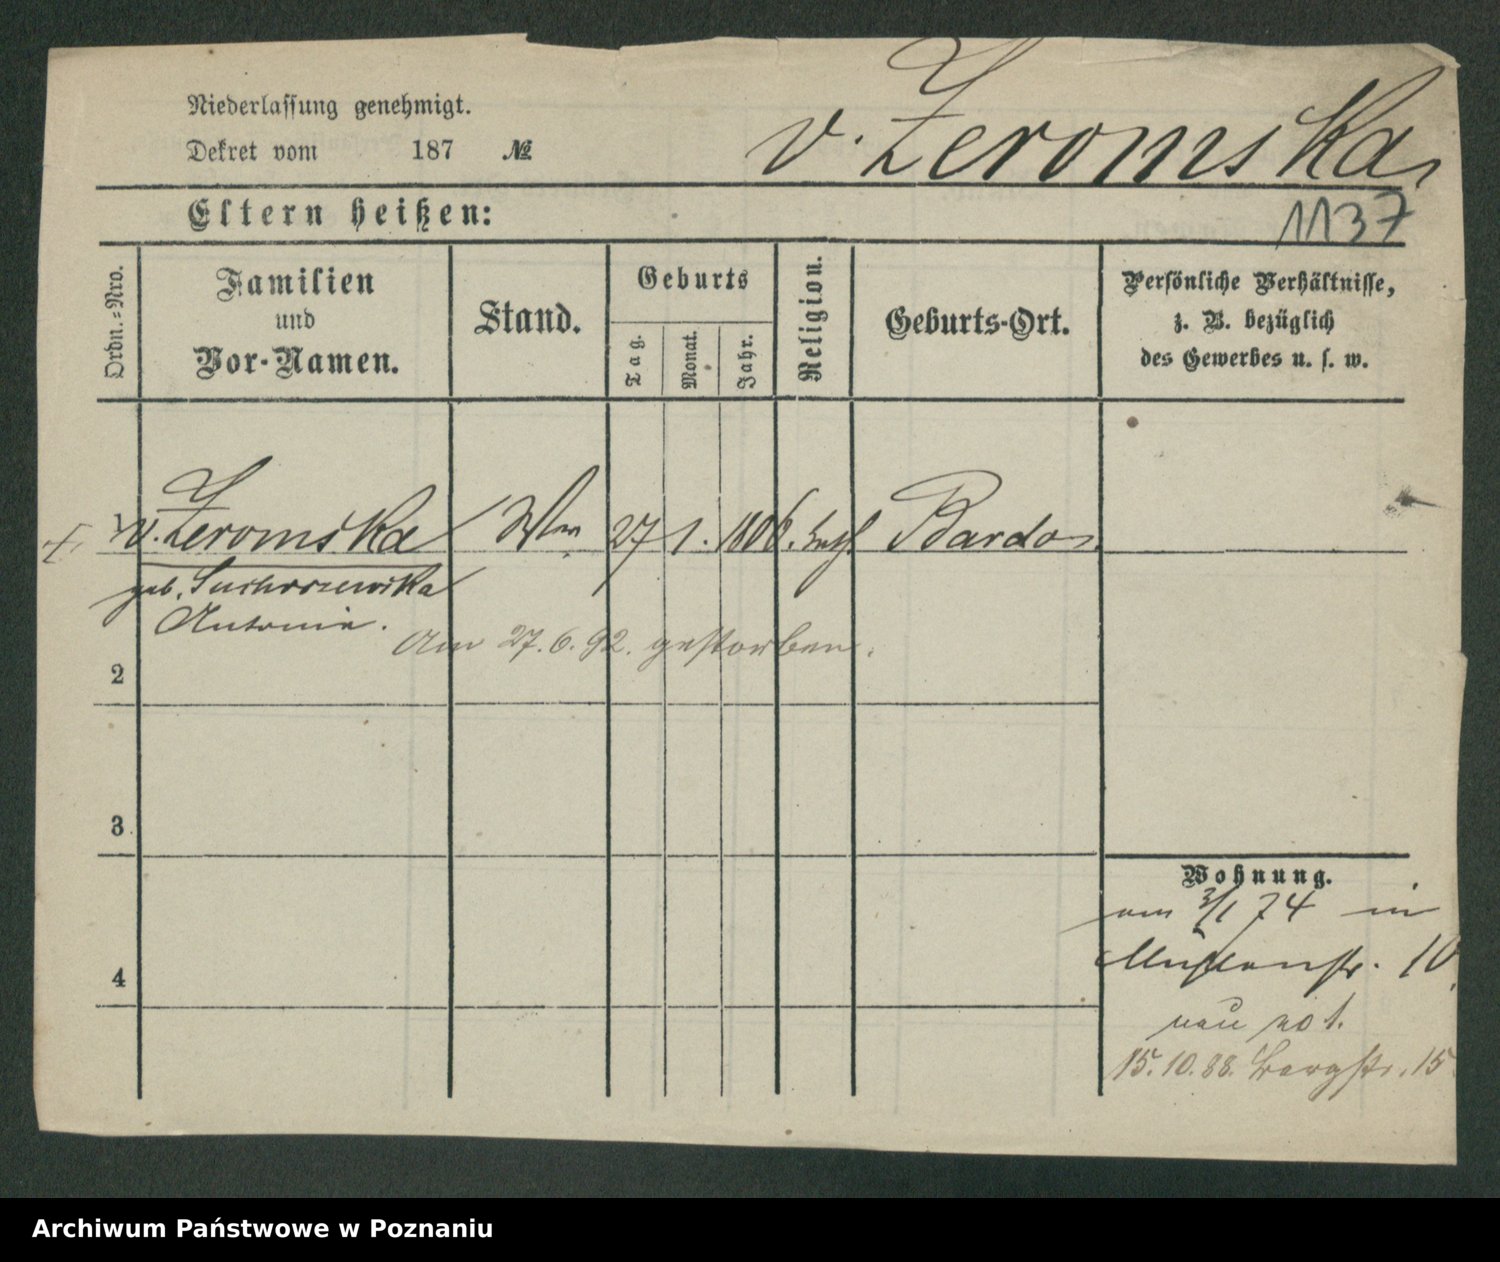 Niederlassung genehmigt.
v. Zeromska
Dekret vom 187 №
Eltern heißen:
1137
Ordn.=Nro.
Familien
und
Vor-Namen.
Stand.
Geburts
Tag.
Monat.
Jahr.
Religion.
Geburts-Ort.
Persönliche Verhältnisse,
z. B. bezüglich
des Gewerbes u. s. w.
1 v. Zeromska Ww 27 1. 1806. kath Bardo
geb. Suchorzewska
Antonie.
Am 27. 6. 92. gestorben.
2
3
4
Wohnung.
am 3/1 74 in
10
neu no 1.
15. 10. 88. Bergstr. 15
Archiwum Państwowe w Poznaniu